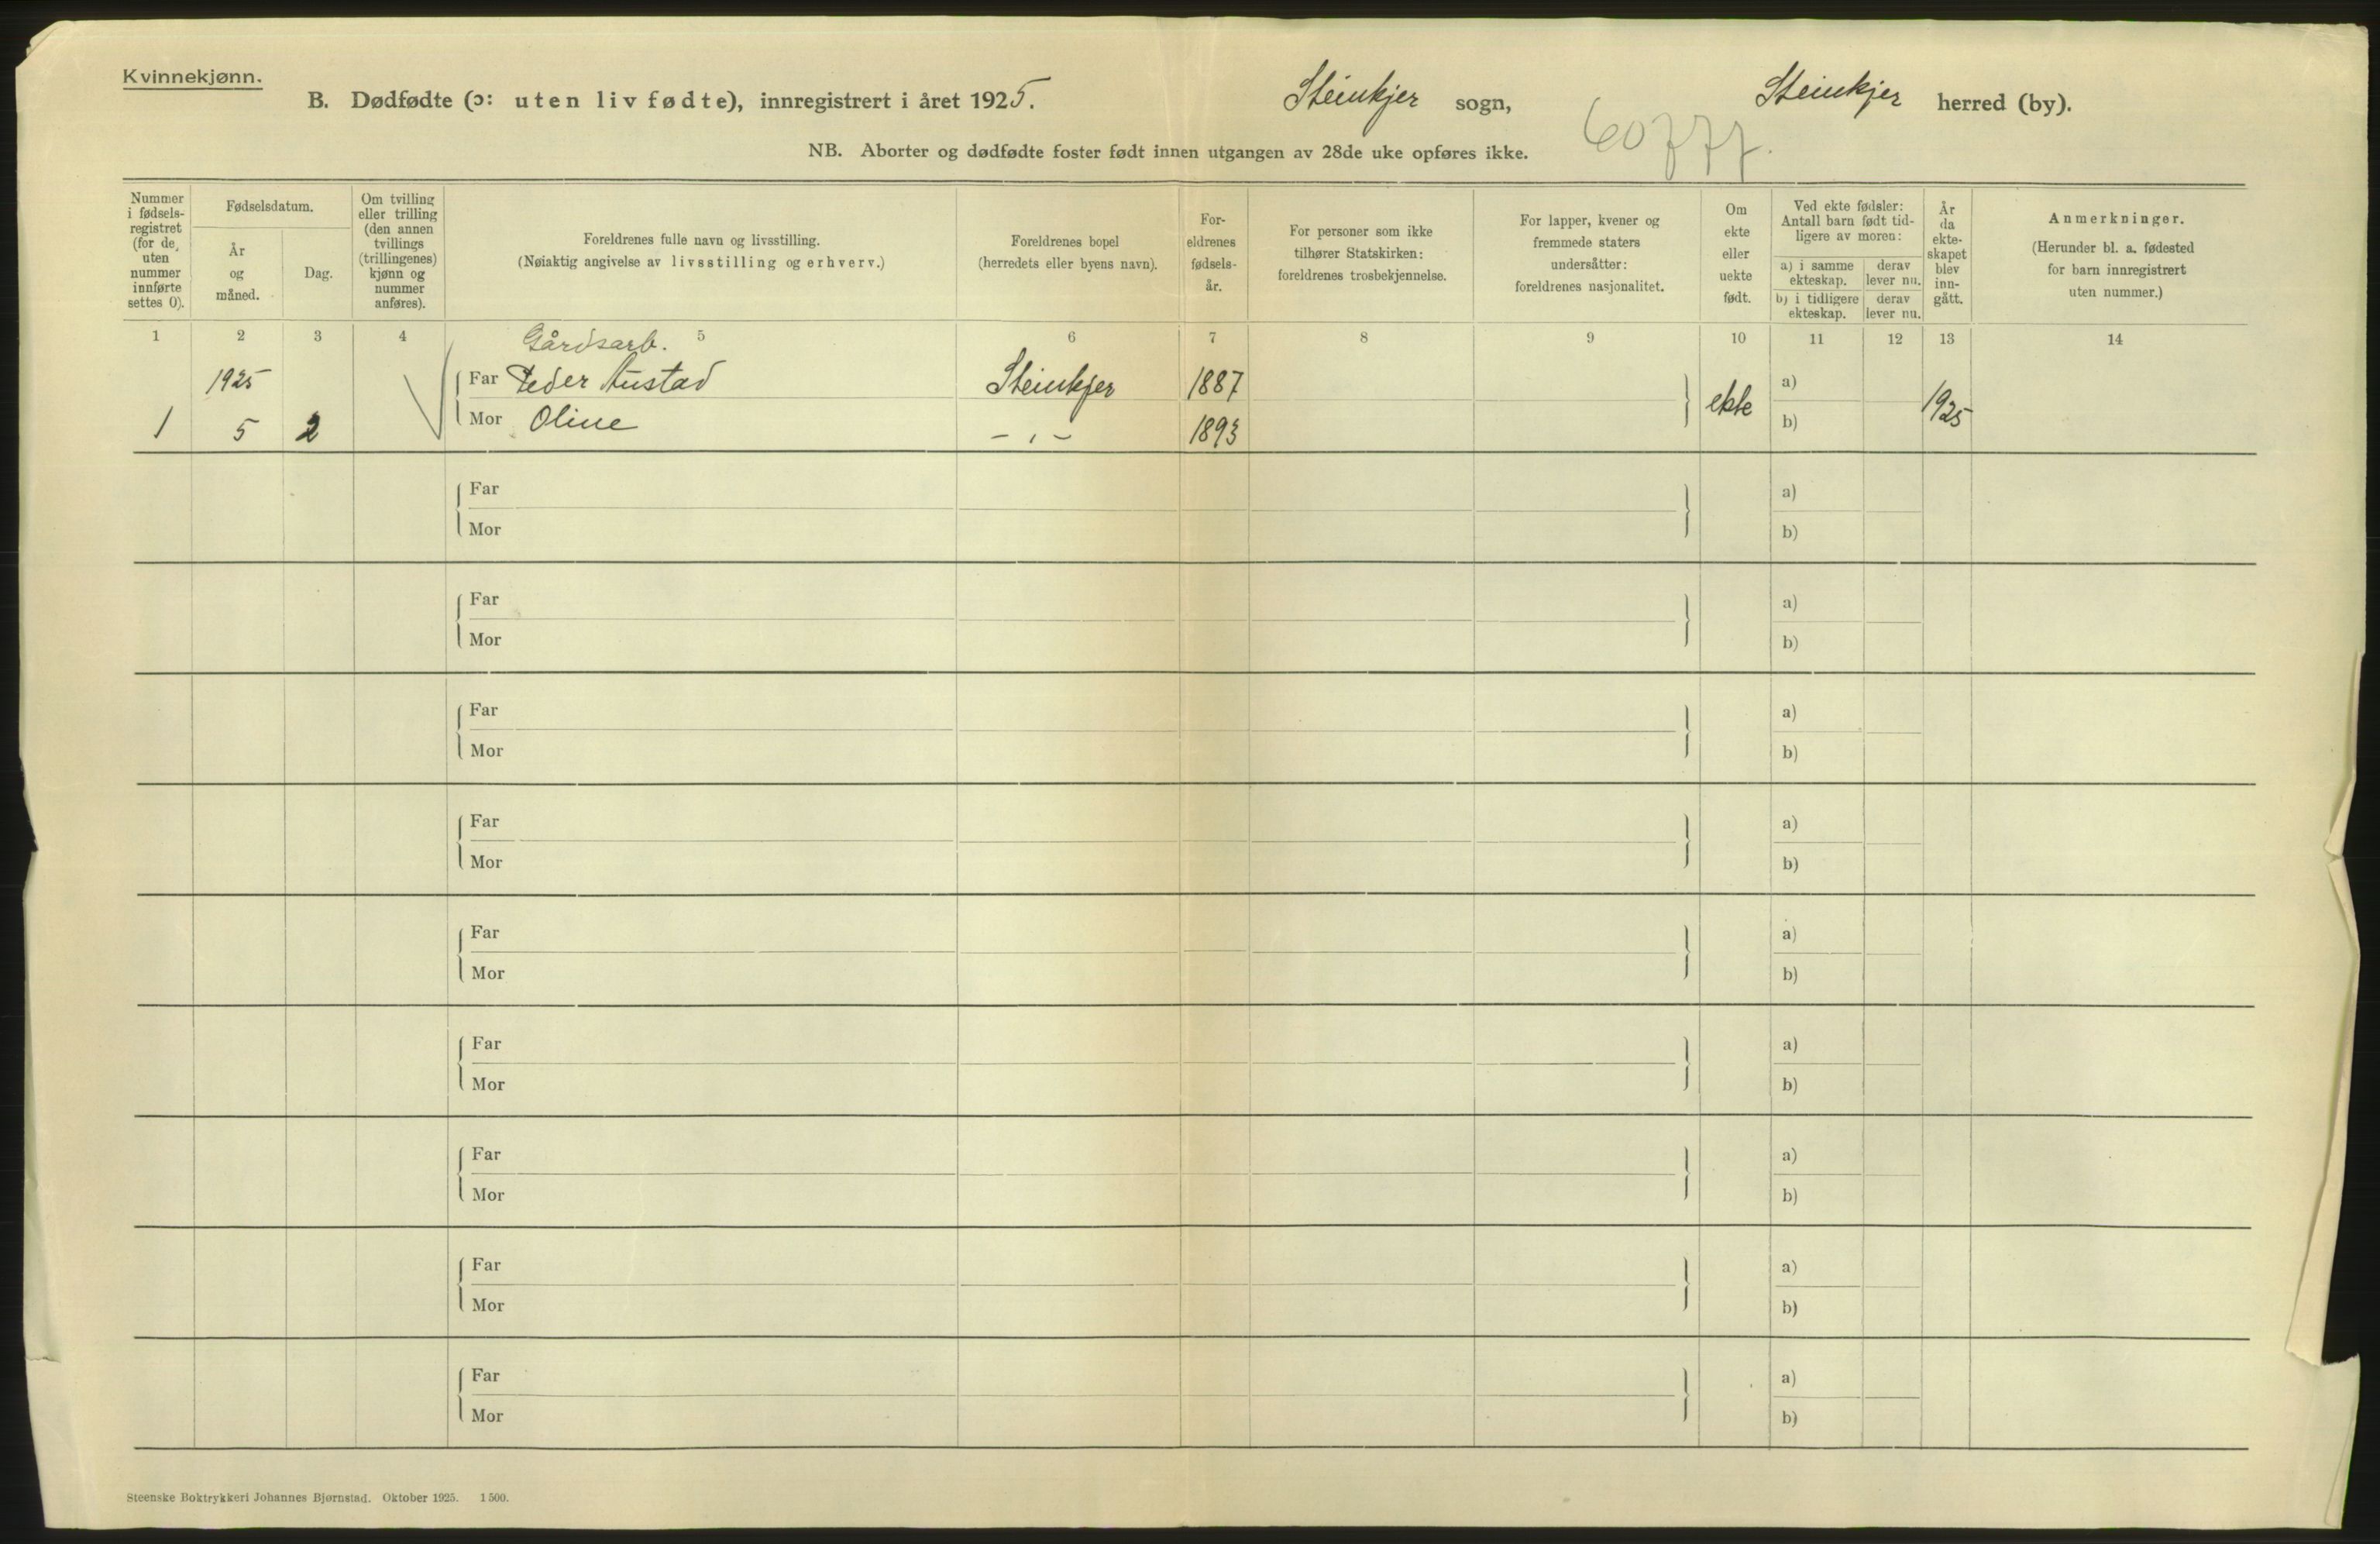 Kvinnekjønn.
B. Dødfødte (ɔ: uten liv fødte), innregistrert i året 1925. Steinkjer sogn, Steinkjer herred (by).
NB. Aborter og dødfødte foster født innen utgangen av 28de uke opføres ikke.
60777.
Nummer
i fødsels-
registret
(for de
uten
nummer
innførte
settes 0).
Fødselsdatum.
År
og
måned.
Dag.
Om tvilling
eller trilling
(den annen
tvillings
(trillingenes)
kjønn og
nummer
anføres).
Foreldrenes fulle navn og livsstilling.
(Nøiaktig angivelse av livsstilling og erhverv.)
Foreldrenes bopel
(herredets eller byens navn).
For-
eldrenes
fødsels-
år.
For personer som ikke
tilhører Statskirken:
foreldrenes trosbekjennelse.
For lapper, kvener og
fremmede staters
undersåtter:
foreldrenes nasjonalitet.
Om
ekte
eller
uekte
født.
Ved ekte fødsler:
Antall barn født tid-
ligere av moren:
a) i samme
ekteskap.
derav
lever nu.
b) i tidligere
ekteskap.
derav
lever nu.
År
da
ekte-
skapet
blev
inn-
gått.
Anmerkninger.
(Herunder bl. a. fødested
for barn innregistrert
uten nummer.)
1 2 3 4 5 6 7 8 9 10 11 12 13 14
Gårdsarb.
1925 Far Peder Austad Steinkjer 1887 a)
1 5 2 Mor Oline – „ – 1893 ekte b) 1925
Far a)
Mor b)
Far a)
Mor b)
Far a)
Mor b)
Far a)
Mor b)
Far a)
Mor b)
Far a)
Mor b)
Far a)
Mor b)
Far a)
Mor b)
Far a)
Mor b)
Steenske Boktrykkeri Johannes Bjørnstad. Oktober 1925. 1500.